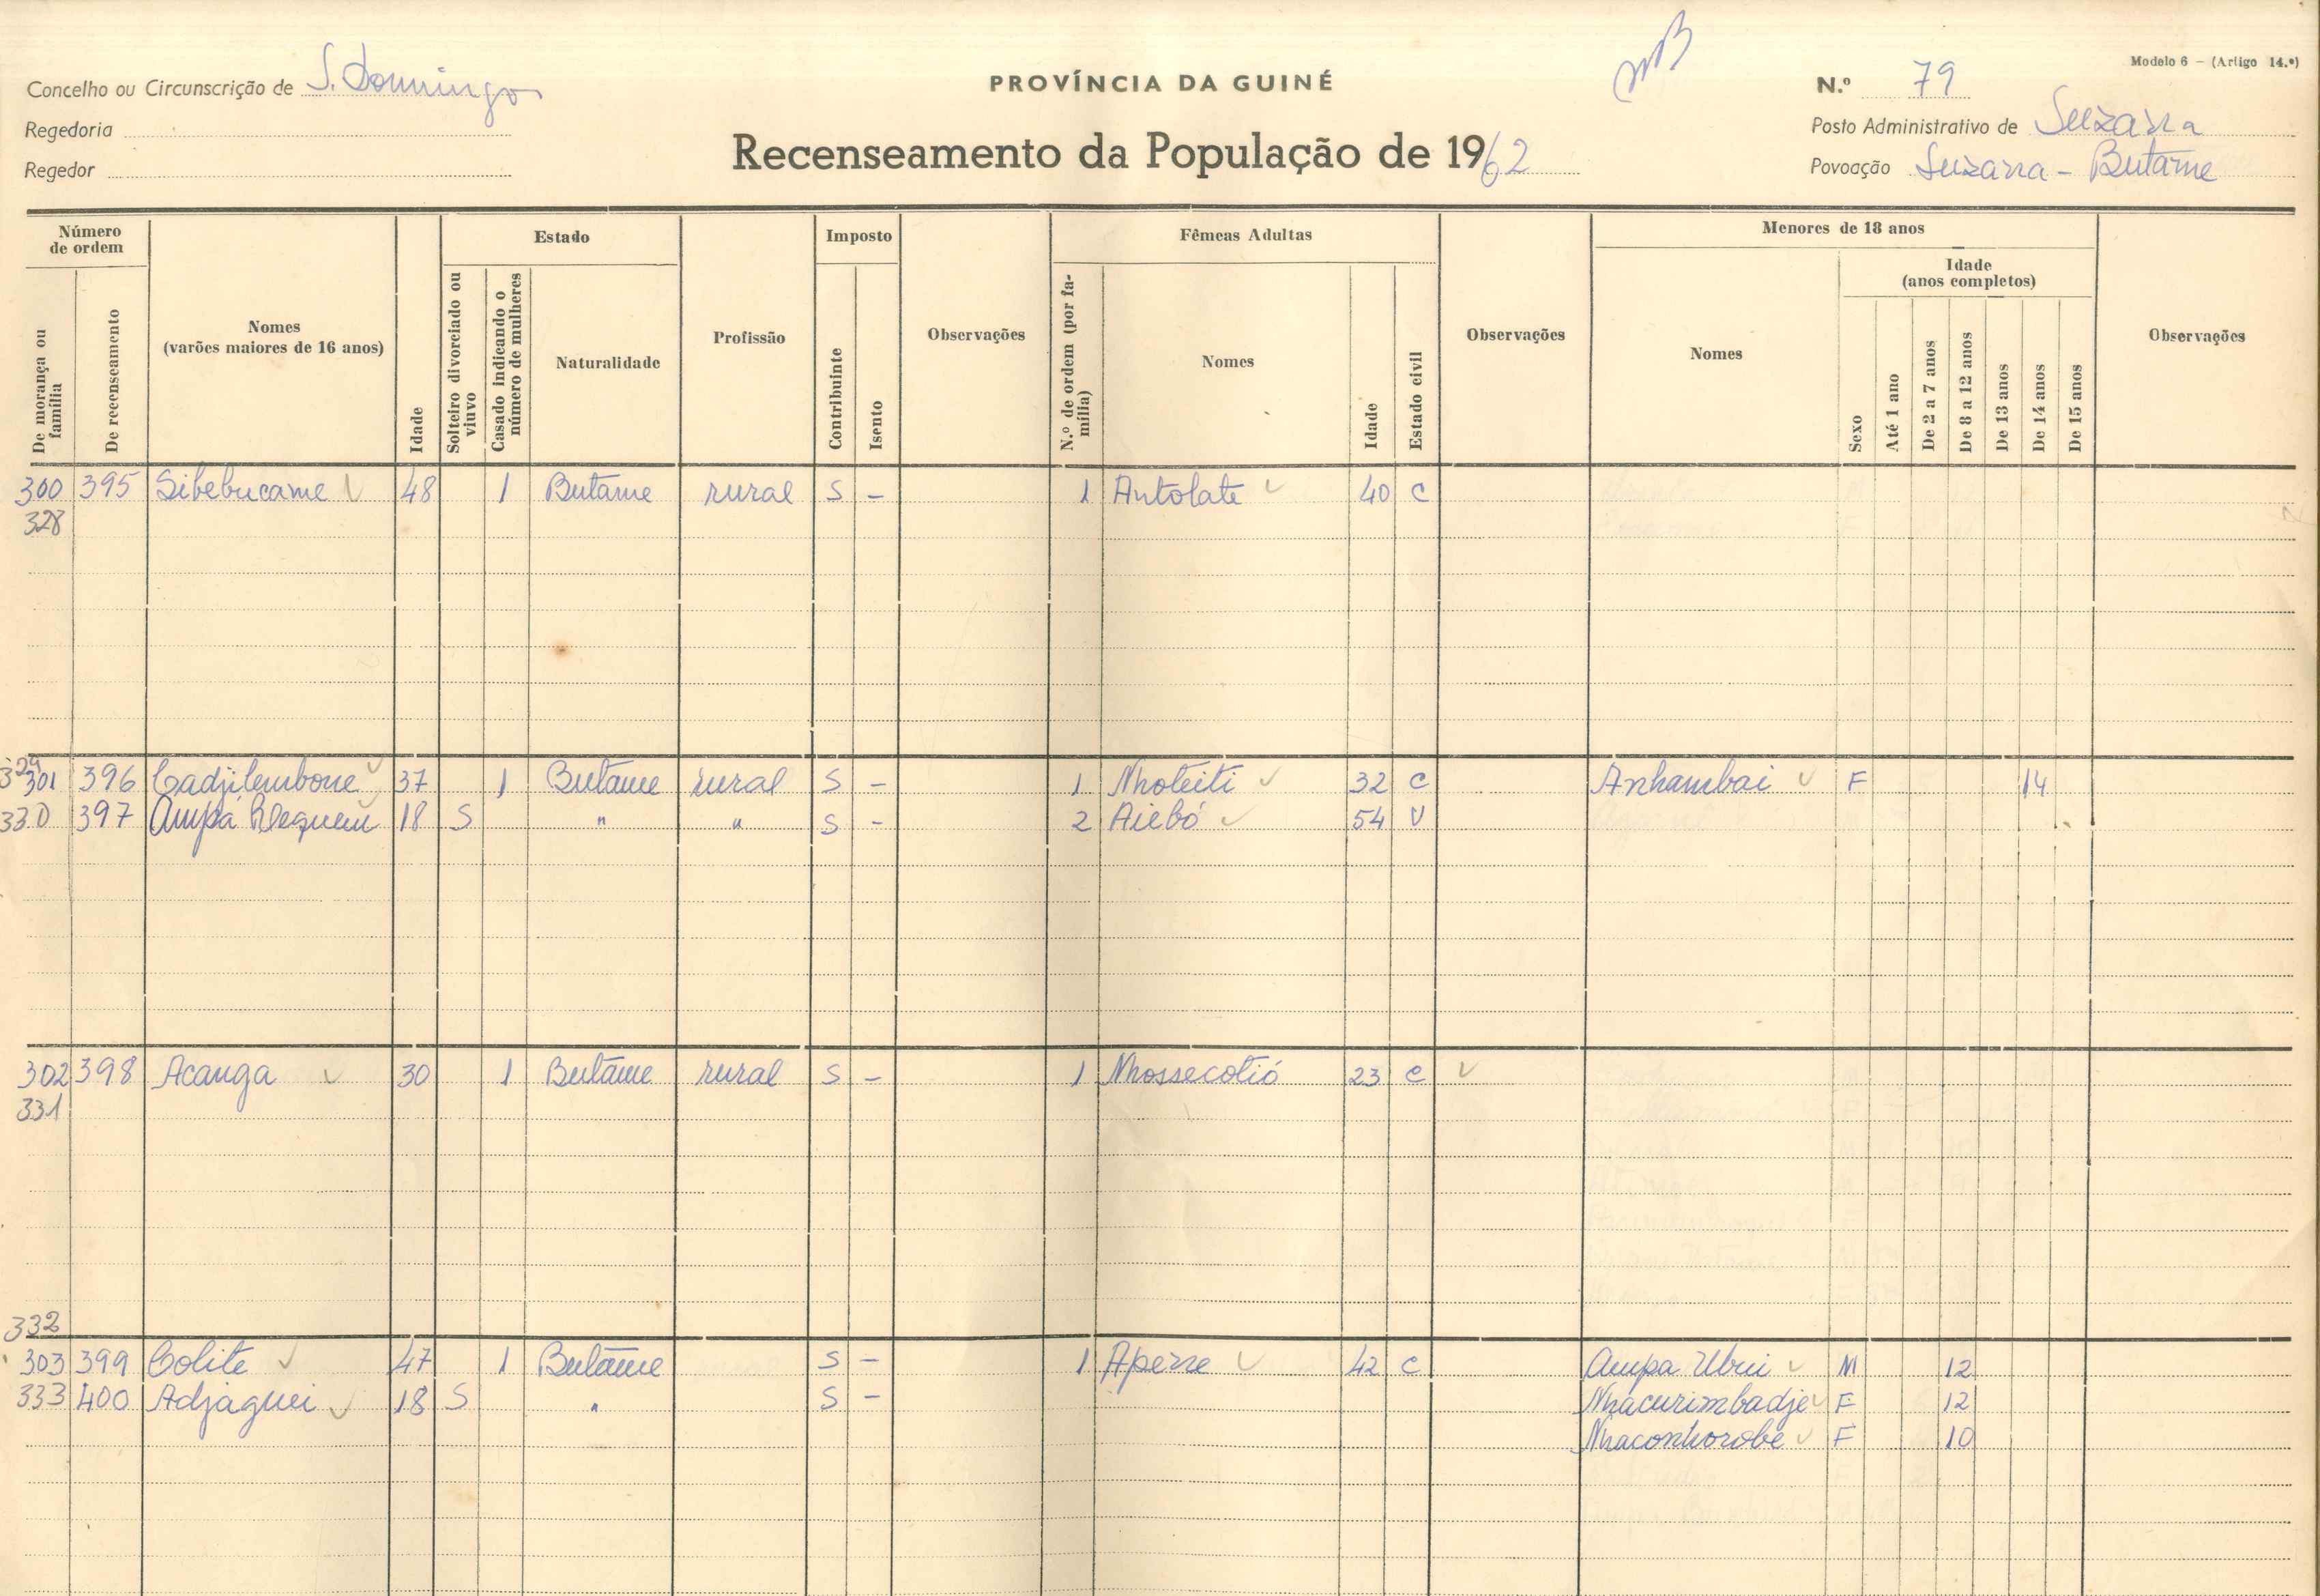 Modelo 6 — (Artigo 14.º)
Concelho ou Circunscrição de S. Domingos
PROVÍNCIA DA GUINÉ
N.º 79
Regedoria
Posto Administrativo de Suzana
Regedor
Recenseamento da População de 1962
Povoação Suzana - Butame
Número de ordem
De morança ou família
De recenseamento
Nomes (varões maiores de 16 anos)
Idade
Estado
Solteiro divorciado ou viuvo
Casado indicando o número de mulheres
Naturalidade
Profissão
Imposto
Contribuinte
Isento
Observações
Fêmeas Adultas
N.º de ordem (por família)
Nomes
Idade
Estado civil
Observações
Menores de 18 anos
Nomes
Sexo
Idade (anos completos)
Até 1 ano
De 2 a 7 anos
De 8 a 12 anos
De 13 anos
De 14 anos
De 15 anos
Observações
300 395 Sibebucame 48 1 Butame rural S - 1 Antolate 40 C
328
329
301 396 Cadjilembone 37 1 Butame rural S - 1 Nhoteiti 32 C Anhambai F 14
330 397 Ampa 18 S " " S - 2 Aiebó 54 V
302 398 Acanga 30 1 Butame rural S - 1 Nhossecotió 23 C
331
332
303 399 Colite 47 1 Butame S - 1 Apenne 42 C Ampa Ubui M 12
333 400 Adjaguei 18 S " S - Nhacurimbadje F 12
Nhaconhorobe F 10